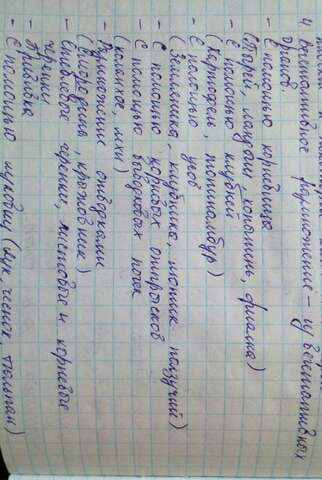 4. Вегетативное размножение – из вегетативных
органов.
- С помощью корневища
(Пырей, ландыш, копытень, фиалка)
- С помощью клубней
(Картофель, топинамбур)
- С помощью усов
(Земляника, клубника, лютик ползучий)
- С помощью корневых отпрысков
- С помощью выводковых почек
(каланхое, мхи)
- Размножение отводками
(смородина, крыжовник)
- Стеблевое черенки, листовые и корневые
черенки
- Прививка
- С помощью луковиц (Лук, чеснок, тюльпан)